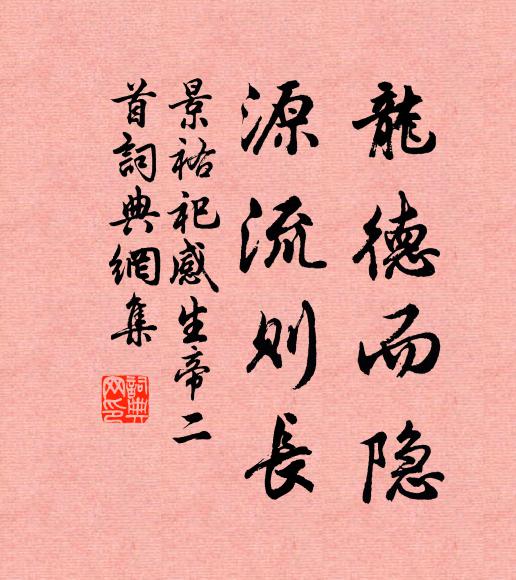 龍德而隐
源流则長
景祐祀感生帝二
首詞典網集
詞典网印